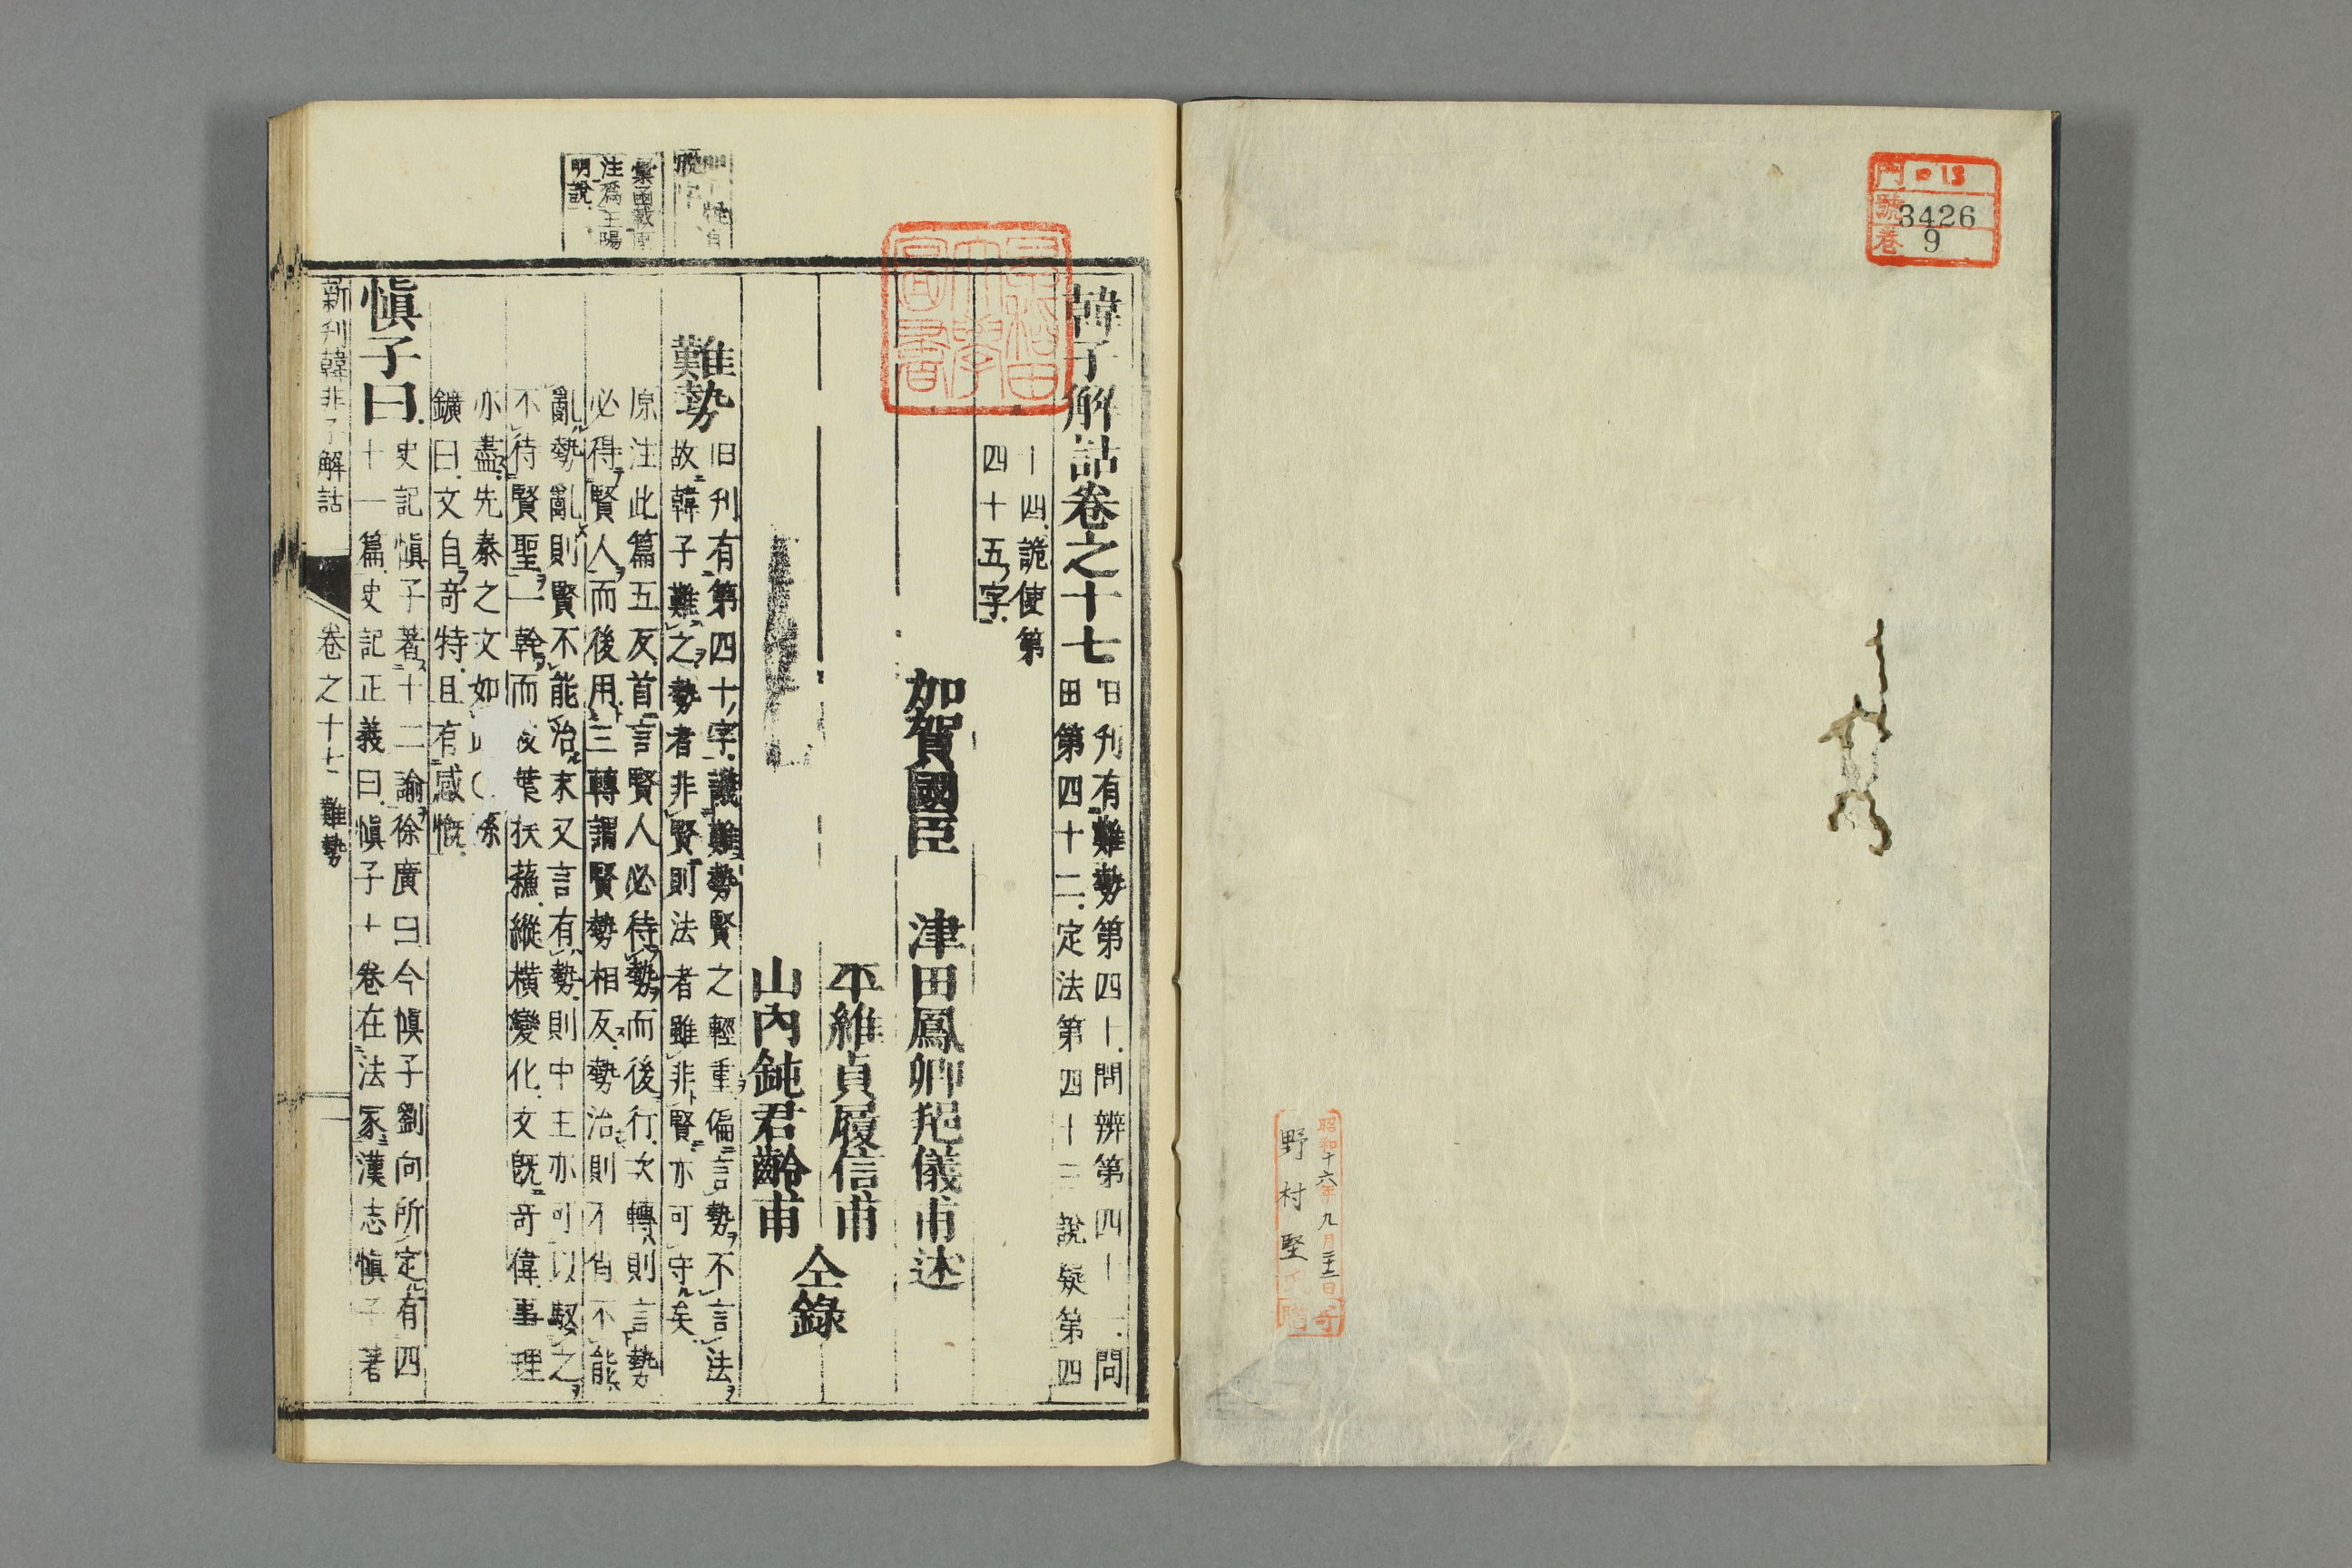 門 ロ 13
號 3426
卷 9
昭和十六年九月二十二日
野村堅氏贈寄
韓子解詁卷之十七
旧刊有難勢第四十問辨第四十一問
田第四十二定法第四十三說疑第四
十四詭使第
四十五字
加賀國臣 津田鳳卿邦儀甫述
平維貞履信甫
山內鈍君齡甫
仝錄
難勢
旧刊有第四十字議難勢賢之輕重偏言勢不言法
故韓子難之勢者非賢則法者雖非賢亦可守矣
原注此篇五反首言賢人必待勢而後行次轉則言勢
必得賢人而後用三轉謂賢勢相反勢治則不肖不能
亂勢亂則賢不能治末又言有勢則中主亦可以駁之
不待賢聖一幹而葉扶蘇縱橫變化文旣奇偉事理
亦盡先秦之文如此○孫
鑛曰文自奇特且有感慨
慎子曰
史記慎子著十二論徐廣曰今慎子劉向所定有四
十一篇史記正義曰慎子十卷在法家漢志慎子著
彙函載
注爲王陽
明說
新刊韓非子解詁 卷之十七 難勢 一